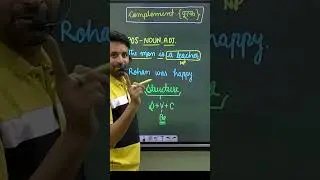 Complement {पूरक}
POS-NOUN, ADJ.
The man is a teacher
NP
Rohan was happy.
Structure
S+V+C
Be